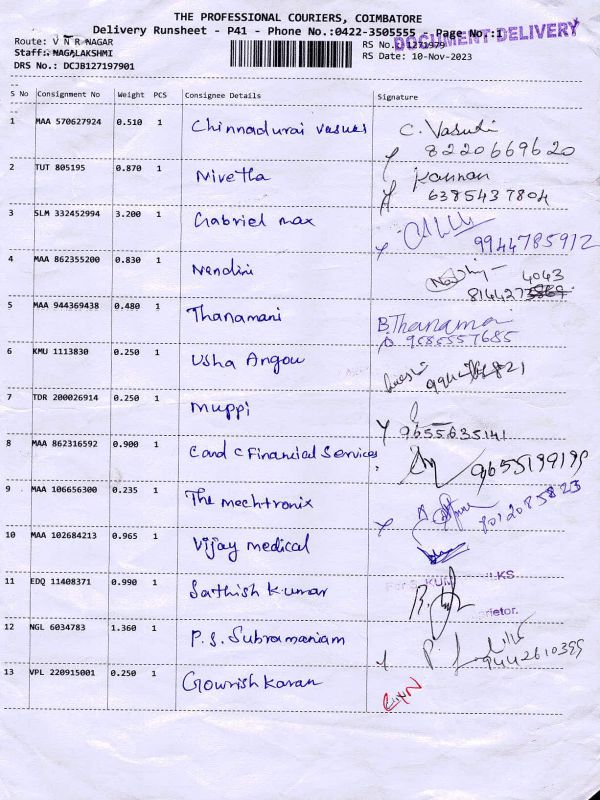 THE PROFESSIONAL COURIERS, COIMBATORE
Delivery Runsheet - P41 - Phone No.:0422-3505555 - Page No.:1
DOCUMENT DELIVERY
Route: V N R NAGAR RS No.: 1271979
Staff: NAGALAKSHMI RS Date: 10-Nov-2023
DRS No.: DCJB127197901
S No Consignment No Weight PCS Consignee Details Signature
1 MAA 570627924 0.510 1 Chinnadurai vasuki C. Vasuki
8220669620
2 TUT 805195 0.870 1 Nivetha Kannan
6385437804
3 SLM 332452994 3.200 1 Gabriel max
9944785912
4 MAA 862355200 0.830 1 Nandini 4043
8144273
5 MAA 944369438 0.480 1 Thanamani B.Thanamani
9585557685
6 KMU 1113830 0.250 1 Usha Angou
7 TDR 200026914 0.250 1 Muppi
9655635141
8 MAA 862316592 0.900 1 C and C Financial Services
9655199199
9 MAA 106656300 0.235 1 The mechtronix
8012085823
10 MAA 102684213 0.965 1 Vijay medical
11 EDQ 11408371 0.990 1 Sathish Kumar
12 NGL 6034783 1.360 1 P.S. Subramaniam
9442610399
13 VPL 220915001 0.250 1 Gowrish Karan